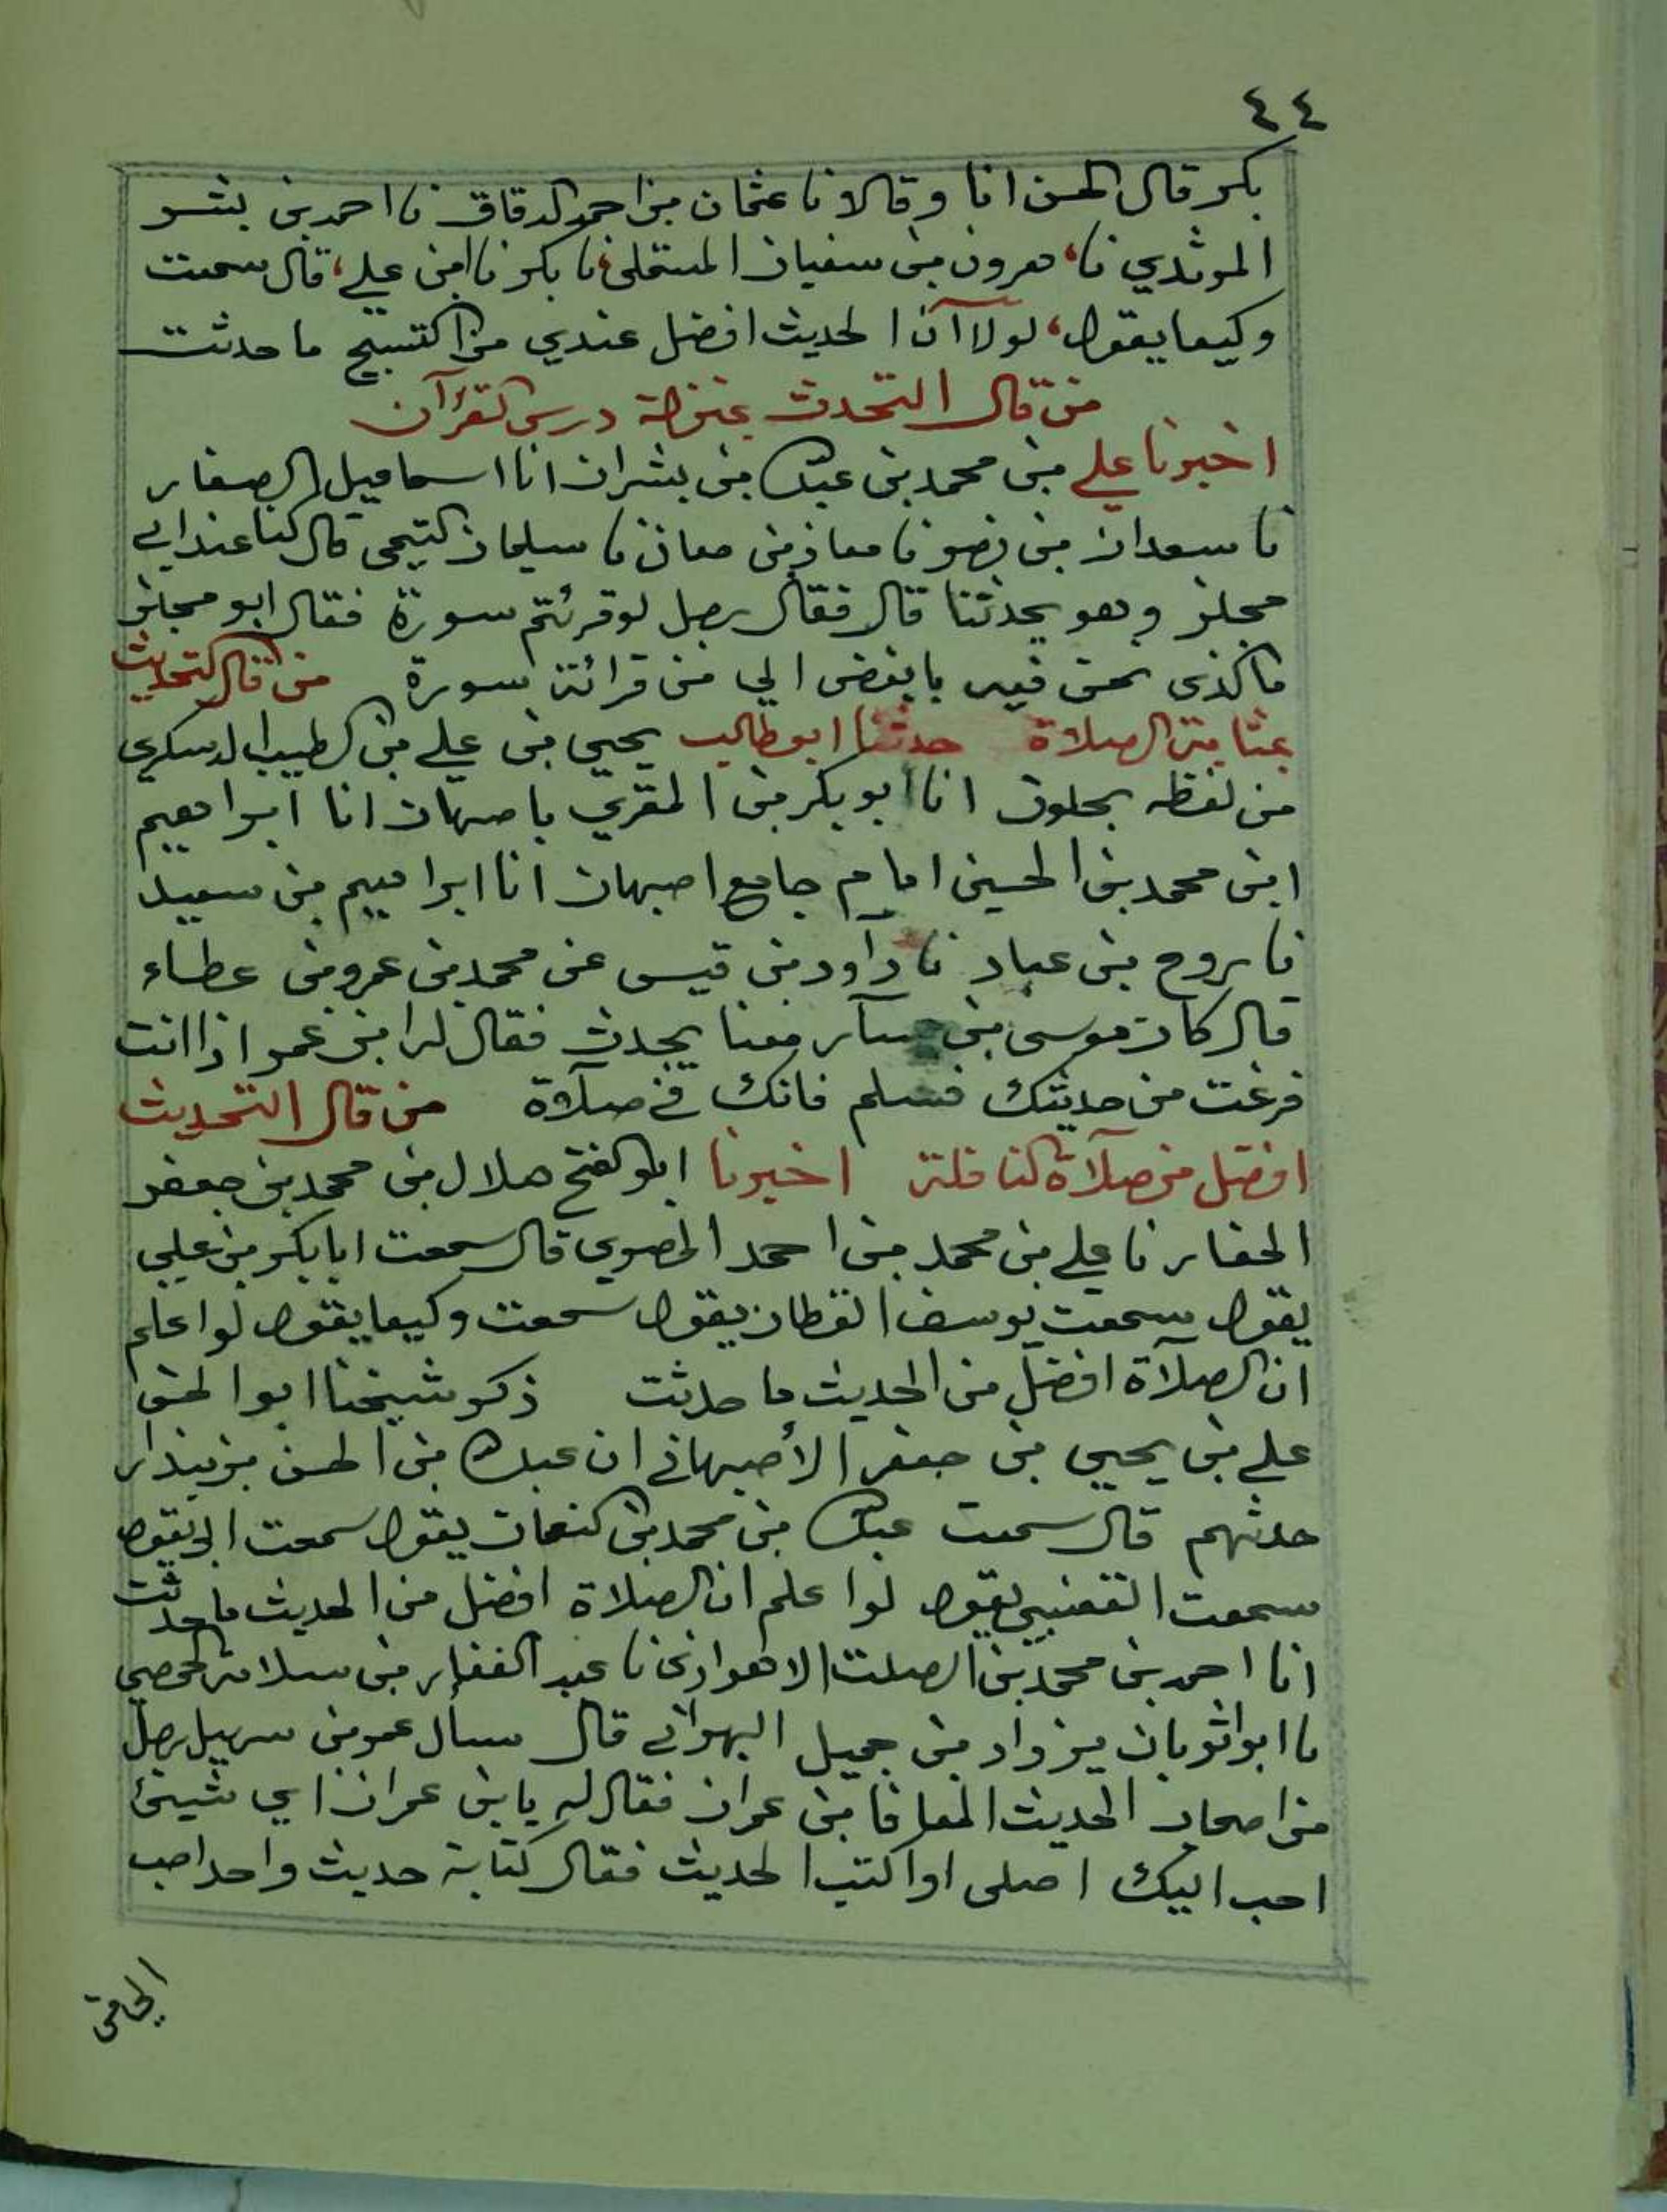 ٤٤
بكر قال الحسن انا وقالا نا عثمان بن احمد الدقاق نا احمد بن بشر
المرثدي نا، هرون بن سفيان المستملى، نا بكر نا ابن علي، قال سمعت
وكيعا يقول، لولا آن الحديث افضل عندي من التسبيح ما حدثت
من قال التحدث بمنزلة درس القرآن
اخبرنا علي بن محمد بن عبدالله بن بشران انا اسماعيل الصفار
نا سعدان بن نصر نا معاذ بن معاذ نا سليمان التيمى قال كنا عند ابي
مجلز وهو يحدثنا قال فقال رجل لو قرئتم سورة فقال ابو مجلز
ما الذى نحن فيه بابغض الي من قرائة سورة من قال التحديث
بمثابة الصلاة حدثنا ابو طالب يحيي بن علي بن الطيب الدسكري
من لفظه بحلوان انا ابو بكر بن المقري باصبهان انا ابراهيم
ابن محمد بن الحسين امام جامع اصبهان انا ابراهيم بن سعيد
نا روح بن عباد نا داود بن قيس عن محمد بن عمرو بن عطاء
قال كان موسى بن يسآر معنا يحدث فقال له ابن عمر اذا انت
فرغت من حديثك فسلم فانك في صلآة من قال التحديث
افضل من صلآة النافلة اخبرنا ابو الفتح هلال بن محمد بن جعفر
الحفار نا علي بن محمد بن احمد المصري قال سمعت ابا بكر بن علي
يقول سمعت يوسف القطان يقول سمعت وكيعا يقول لو اعلم
ان الصلآة افضل من الحديث ما حدثت ذكر شيخنا ابو الحسن
علي بن يحيي بن جعفر الأصبهاني ان عبدالله بن الحسن بن بندار
حدثهم قال سمعت عبدالله بن محمد بن النعمان يقول سمعت ابي يقول
سمعت القعنبي يقول لو اعلم ان الصلاة افضل من الحديث ما حدثت
انا احمد بن محمد بن الصلت الاهوازى نا عبد الغفار بن سلامة الحمصي
نا ابو اثوبان يزداد بن جميل البهراني قال سأل عمر بن سهيل رجل
من اصحاب الحديث المعافا بن عمران فقال له يا بن عمران اي شيئ
احب اليك اصلى او اكتب الحديث فقال كتابة حديث واحد احب